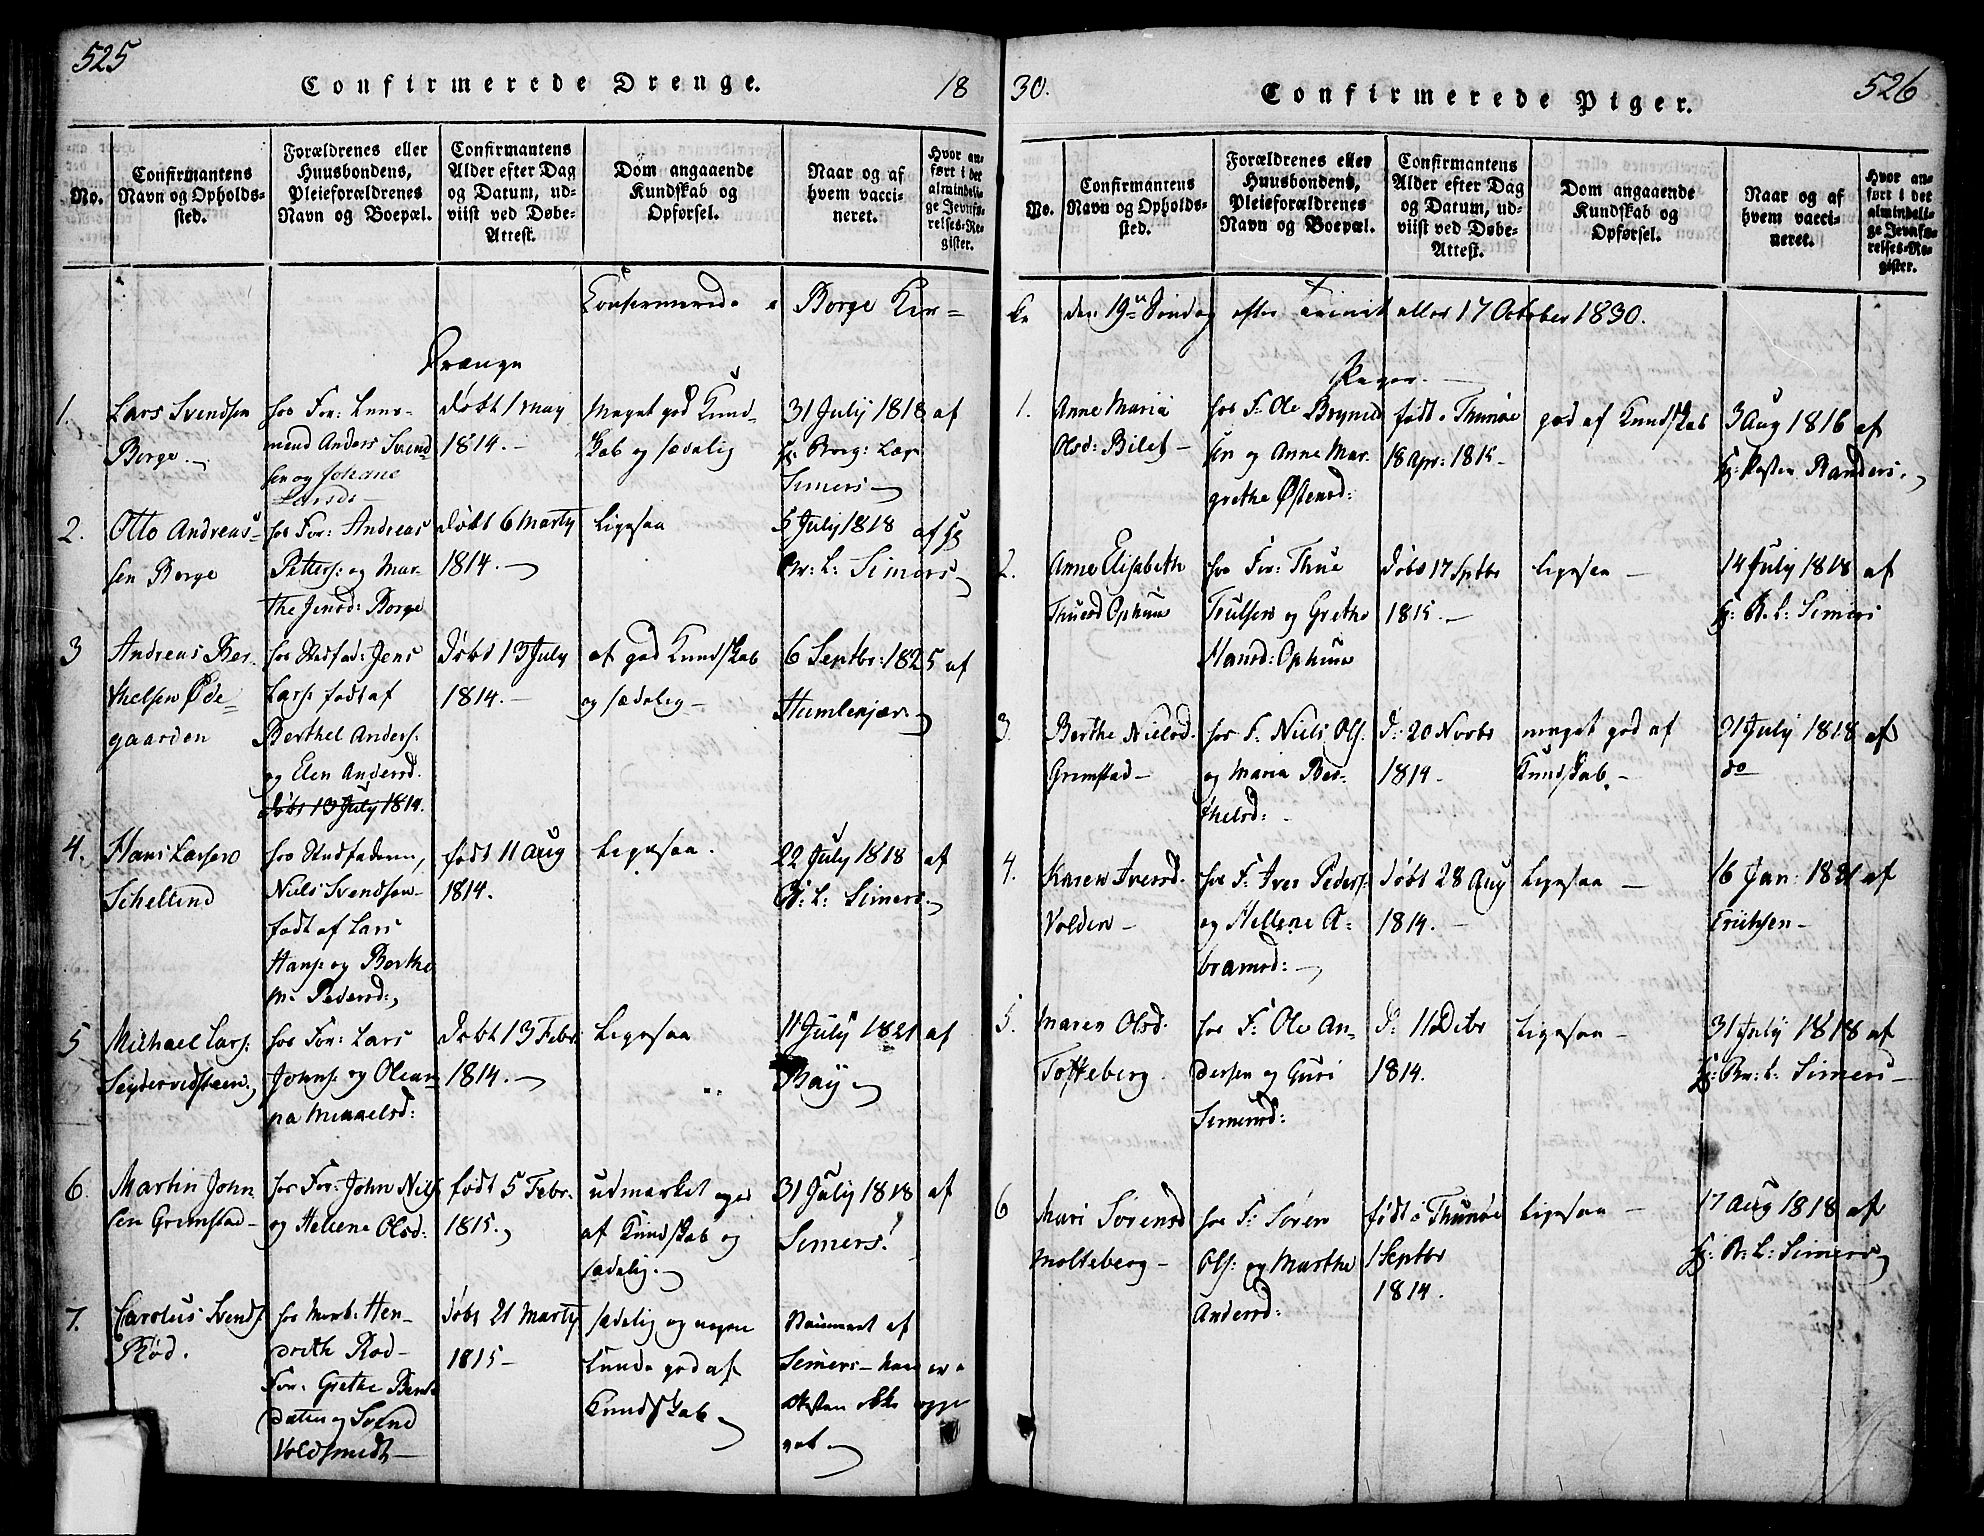 525
Confirmerede Drenge.
18
No.
Confirmantens Navn og Opholds-sted.
Forældrenes eller Huusbondens, Pleieforældrenes Navn og Boepæl.
Confirmantens Alder efter Dag og Datum, ud-viist ved Døbe-Attest.
Dom angaaende Kundskab og Opførsel.
Naar og af hvem vacci-neret.
Hvor an-ført i det almindeli-ge Jevnfø-relses-Re-gister.
Confirmerede i Borge Kir-
Drenge
1.
Lars Svendsen
Borge.
for: Lens-
mand Anders Svend-
sen og Johane
Larsd:
døbt 1 may
1814.
Meget god Kund-
skab og sædelig
31 July 1818 af
Simers
2.
Otto Andreas-
sen Borge
For: Andreas
Petters: og Mar-
the Jensd: Borge
døbt 6 Marty
1814.
Ligesaa
5 July 1818 af
Br: L: Simers
3
Andreas Ber-
thelsen Øde-
gaarden
Stedfad: Jens
Lars: født af
Berthel Anders:
og Elen Andersd.
døbt 13 July 1814.
Døbt 13 July
1814.
af god Kundskab
og sædelig
6 Septbr: 1825 af
Humlekjær
4.
Hans Larsen
Schellind
Stedfaderen,
Niels Svendsen
født af Lars
Hans: og Berthe
M: Pedersd:
født 11 Aug
1814.
Ligesaa.
22 July 1818 af
L: Simers
5
Michael Lars:
For: Lars
Johns: og Olean-
na Mickelsd:
Døbt 13 Febr
1814.
Ligesaa
11 July 1821 af
Bay
6.
Martin John-
sen Grimstad
For: John Nils:
og Helene Olsd:
født 5 Febr.
1815.
udmærket god
af Kundskab og
sædelig.
31 July 1818 af
Simers!
7.
Carolus Svends:
Rød.
Hen-
Rød
For: Grethe
og Svend
Voldsmedt
døbt 21 Marty
1815
sædelig og
god af
Kundskab
af
Simers
ikke
30.
Confirmerede Piger.
526
No.
Confirmantens Navn og Opholds-sted.
Forældrenes eller Huusbondens, Pleieforældrenes Navn og Boepæl.
Confirmantens Alder efter Dag og Datum, ud-viist ved Døbe-Attest.
Dom angaaende Kundskab og Opførsel.
Naar og af hvem vacci-neret.
Hvor an-ført i det almindeli-ge Jevnfø-relses-Re-gister.
ke den 19de Søndag efter Trinit eller 17 October 1830.
Piger.
1.
Anne Maria
Olsd: Bilet
F: Ole Brynild-
sen og Anne Mar-
grethe Østensd:
født i Thunøe
18 Apr: 1815
god af Kundskab
3 Aug 1816 af
Hr: Pastor Randers.
2.
Anne Elisabeth
Thuesd Ophuus
For: Thue
Trulsen og Grethe
Hansd: Ophuus
Døbt 17 Sptbr
1815.
Ligesaa
14 July 1818 af
Hr: B: L: Simers
3.
Berthe Nielsd.
Grimstad
F: Niels Ols:
og Maria Ber-
thelsd:
d: 20 Novbr
1814.
meget god af
Kundskab
31 July 1818 af
do
4.
Karen Iversd.
Volden
F: Iver Peders:
og Hellene A-
bramsd:
døbt 28 Aug
1814.
Ligesaa
16 Jan: 1821 af
Erichsen
5.
Maren Olsd.
Tofteberg
F: Ole An-
dersen og Guri
Simensd:
d: 11 Decbr
1814.
Ligesaa
31 July 1818 af
Hr: Br: L: Simers
6
Mari Sørensd
Molteberg
F: Søren
Ols: og Marthe
Andersd:
født i Thunøe
1 Septbr
1814.
Ligesaa
17 Aug 1818 af
Hr: B: L: Simers